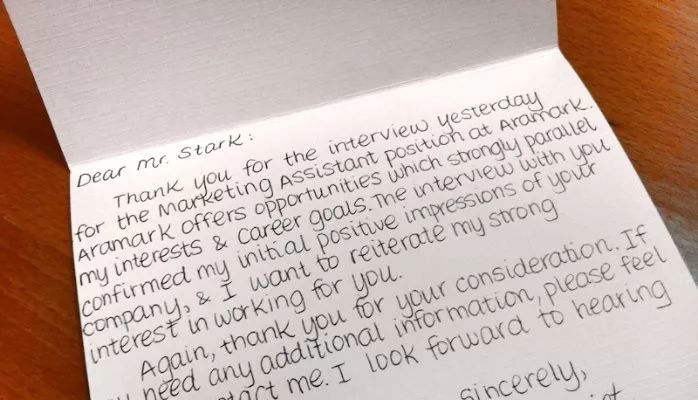 Dear Mr. Stark:
Thank you for the interview yesterday
for the Marketing Assistant position at Aramark.
Aramark offers opportunities which strongly parallel
my interests & career goals. The interview with you
confirmed my initial positive impressions of your
company, & I want to reiterate my strong
interest in working for you.
Again, thank you for your consideration. If
need any additional information, please feel
me. I look forward to hearing
sincerely,